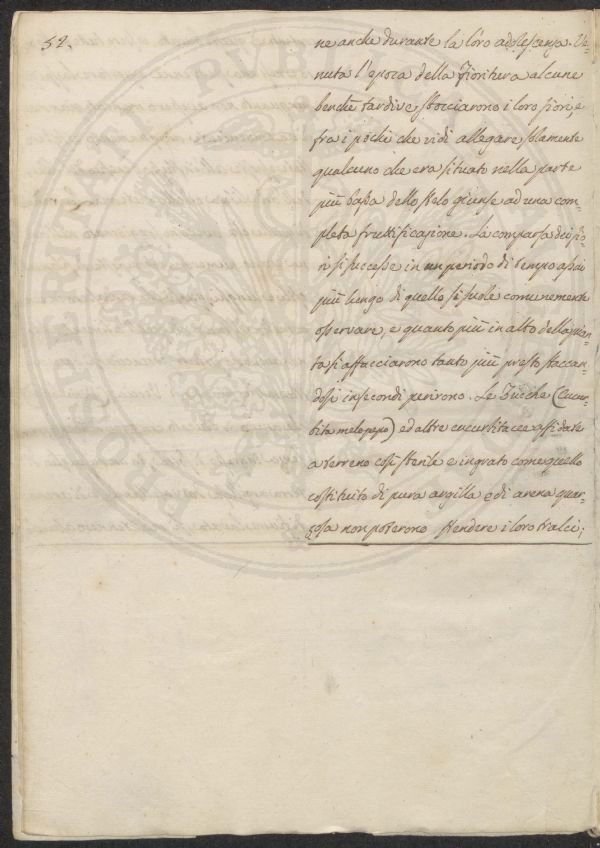 52.
ne anche durante la loro adolescenza. Ve-
nuta l'epoca della fioritura alcune
benchè tardive sbocciarono i loro fiori, e
fra i pochi che vidi allegare solamente
qualcuno che era situato nella parte
più bassa dello stelo giunse ad una com-
pleta fruttificazione. La comparsa dei fio-
ri si successe in un periodo di tempo assai
più lungo di quello si suole comunemente
osservare, e quanto più in alto della pian-
ta si affacciarono tanto più presto staccan-
dosi infecondi perirono. Le Zucche (Cucur-
bita melopepo) ed altre cucurbitacee affidate
a terreno così sterile e ingrato come quello
costituito di pura argilla e di arena quar-
zosa non poterono stendere i loro tralci;
PROSPERITATI PUBLICAE